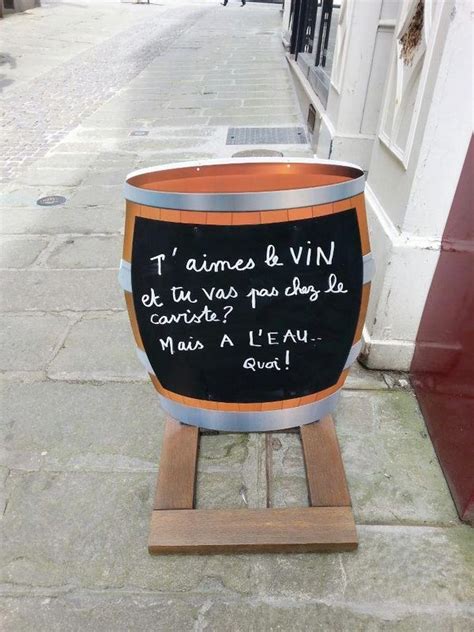 T'aimes le ViN
et tu vas pas chez le
caviste?
Mais A L'EAU..
Quoi!